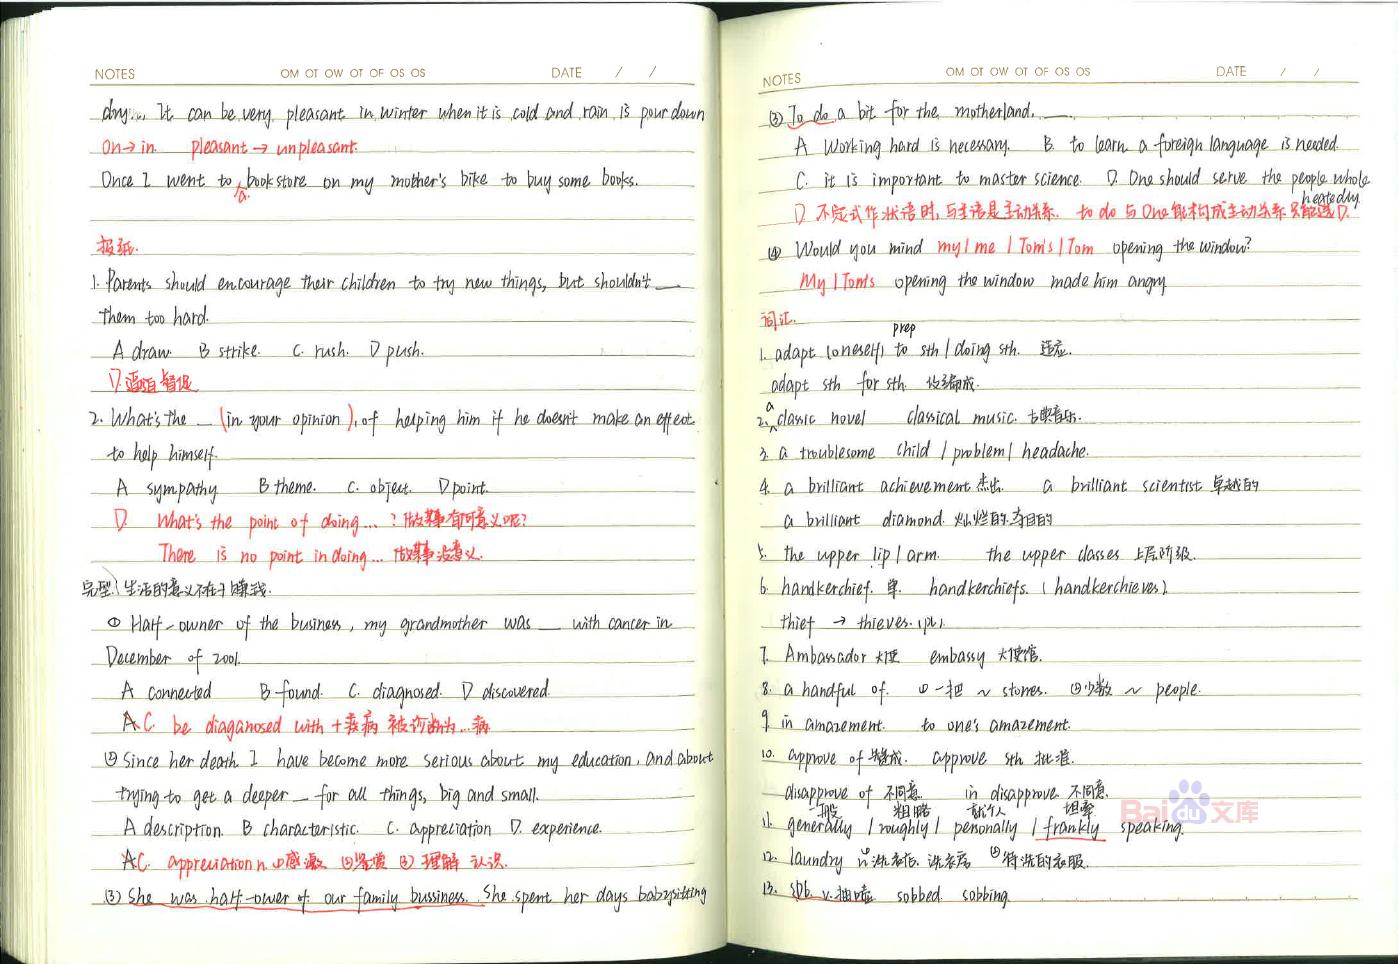 NOTES OM OT OW OT OF OS OS DATE / /
dry... It can be very pleasant in winter when it is cold and rain is pour down
on→in. pleasant → unpleasant.
Once I went to bookstore on my mother's bike to buy some books.
a.
报纸.
1. Parents should encourage their children to try new things, but shouldn't __
them too hard.
A draw. B strike. C. rush. D push.
D. 逼迫 督促
2. What's the __ (in your opinion), of helping him if he doesn't make an effect
to help himself.
A sympathy B theme. C. object. D point.
D. What's the point of doing...? 做某事有何意义呢?
There is no point in doing... 做某事没意义.
完型. 生活的意义不在于赚钱.
① Half-owner of the business, my grandmother was __ with cancer in
December of 2001.
A connected B found. C. diagnosed. D discovered.
A C. be diaganosed with + 疾病 被诊断为...病
② Since her death I have become more serious about my education, and about
trying to get a deeper __ for all things, big and small.
A description. B characteristic. C. appreciation D. experience.
A C. appreciation n. ①感激 ②鉴赏 ③理解 认识.
(3) She was half-ower of our family bussiness. She spent her days babysitting
NOTES OM OT OW OT OF OS OS DATE / /
③ To do a bit for the motherland, __.
A Working hard is necessary. B. to learn a foreign language is needed.
C. it is important to master science. D. One should serve the people whole
heatedly.
D 不定式作状语时,与主语是主动关系. to do 与 One 能构成主动关系 只能选D.
④ Would you mind my / me / Tom's / Tom opening the window?
My / Tom's opening the window made him angry
词汇.
prep
1. adapt (oneself) to sth / doing sth. 适应.
adapt sth for sth. 改编成.
a
2. classic novel classical music. 古典音乐.
3. a troublesome child / problem / headache.
4. a brilliant achievement 杰出. a brilliant scientist 卓越的
a brilliant diamond. 灿烂的.夺目的
5. the upper lip / arm. the upper classes 上层阶级.
6. handkerchief. 单. handkerchiefs. (handkerchieves).
thief → thieves. (pl).
7. Ambassador 大使 embassy 大使馆.
8. a handful of. ①一把 ~ stones. ②少数 ~ people.
9. in amazement. to one's amazement.
10. approve of 赞成. approve sth 批准.
disapprove of 不同意. in disapprove 不同意.
一般 粗略 就个人 坦率
11. generally / roughly / personally / frankly speaking.
12. laundry n. ①洗衣店. 洗衣房 ②待洗的衣服.
13. sob. v. 抽噎 sobbed. sobbing.
Baidu文库